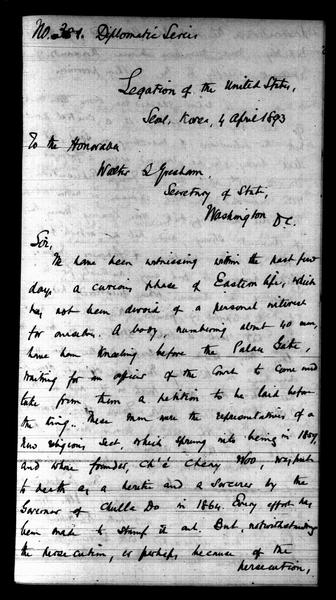 No. 381. Diplomatic Series
Legation of the United States,
Seoul, Korea, 4 April 1893
To the Honorable
Walter Q Gresham.
Secretary of State,
Washington D.C.
Sir,
We have been witnessing within the past few
days, a curious phase of Eastern life, which
has not been devoid of a personal interest
for ourselves. A body, numbering about 40 men,
have been kneeling before the Palace Gate,
waiting for an officer of the Court to come and
take from them a petition to be laid before
the King. These men were the representatives of a
new religious sect, which sprung into being in 1859,
and whose founder, Ch'é Chery Woo, was put
to death as a heretic and a sorcerer by the
Governor of Chulla Do in 1864. Every effort has
been made to stamp it out. But, notwithstanding
the persecution, or perhaps, because of the
persecution,